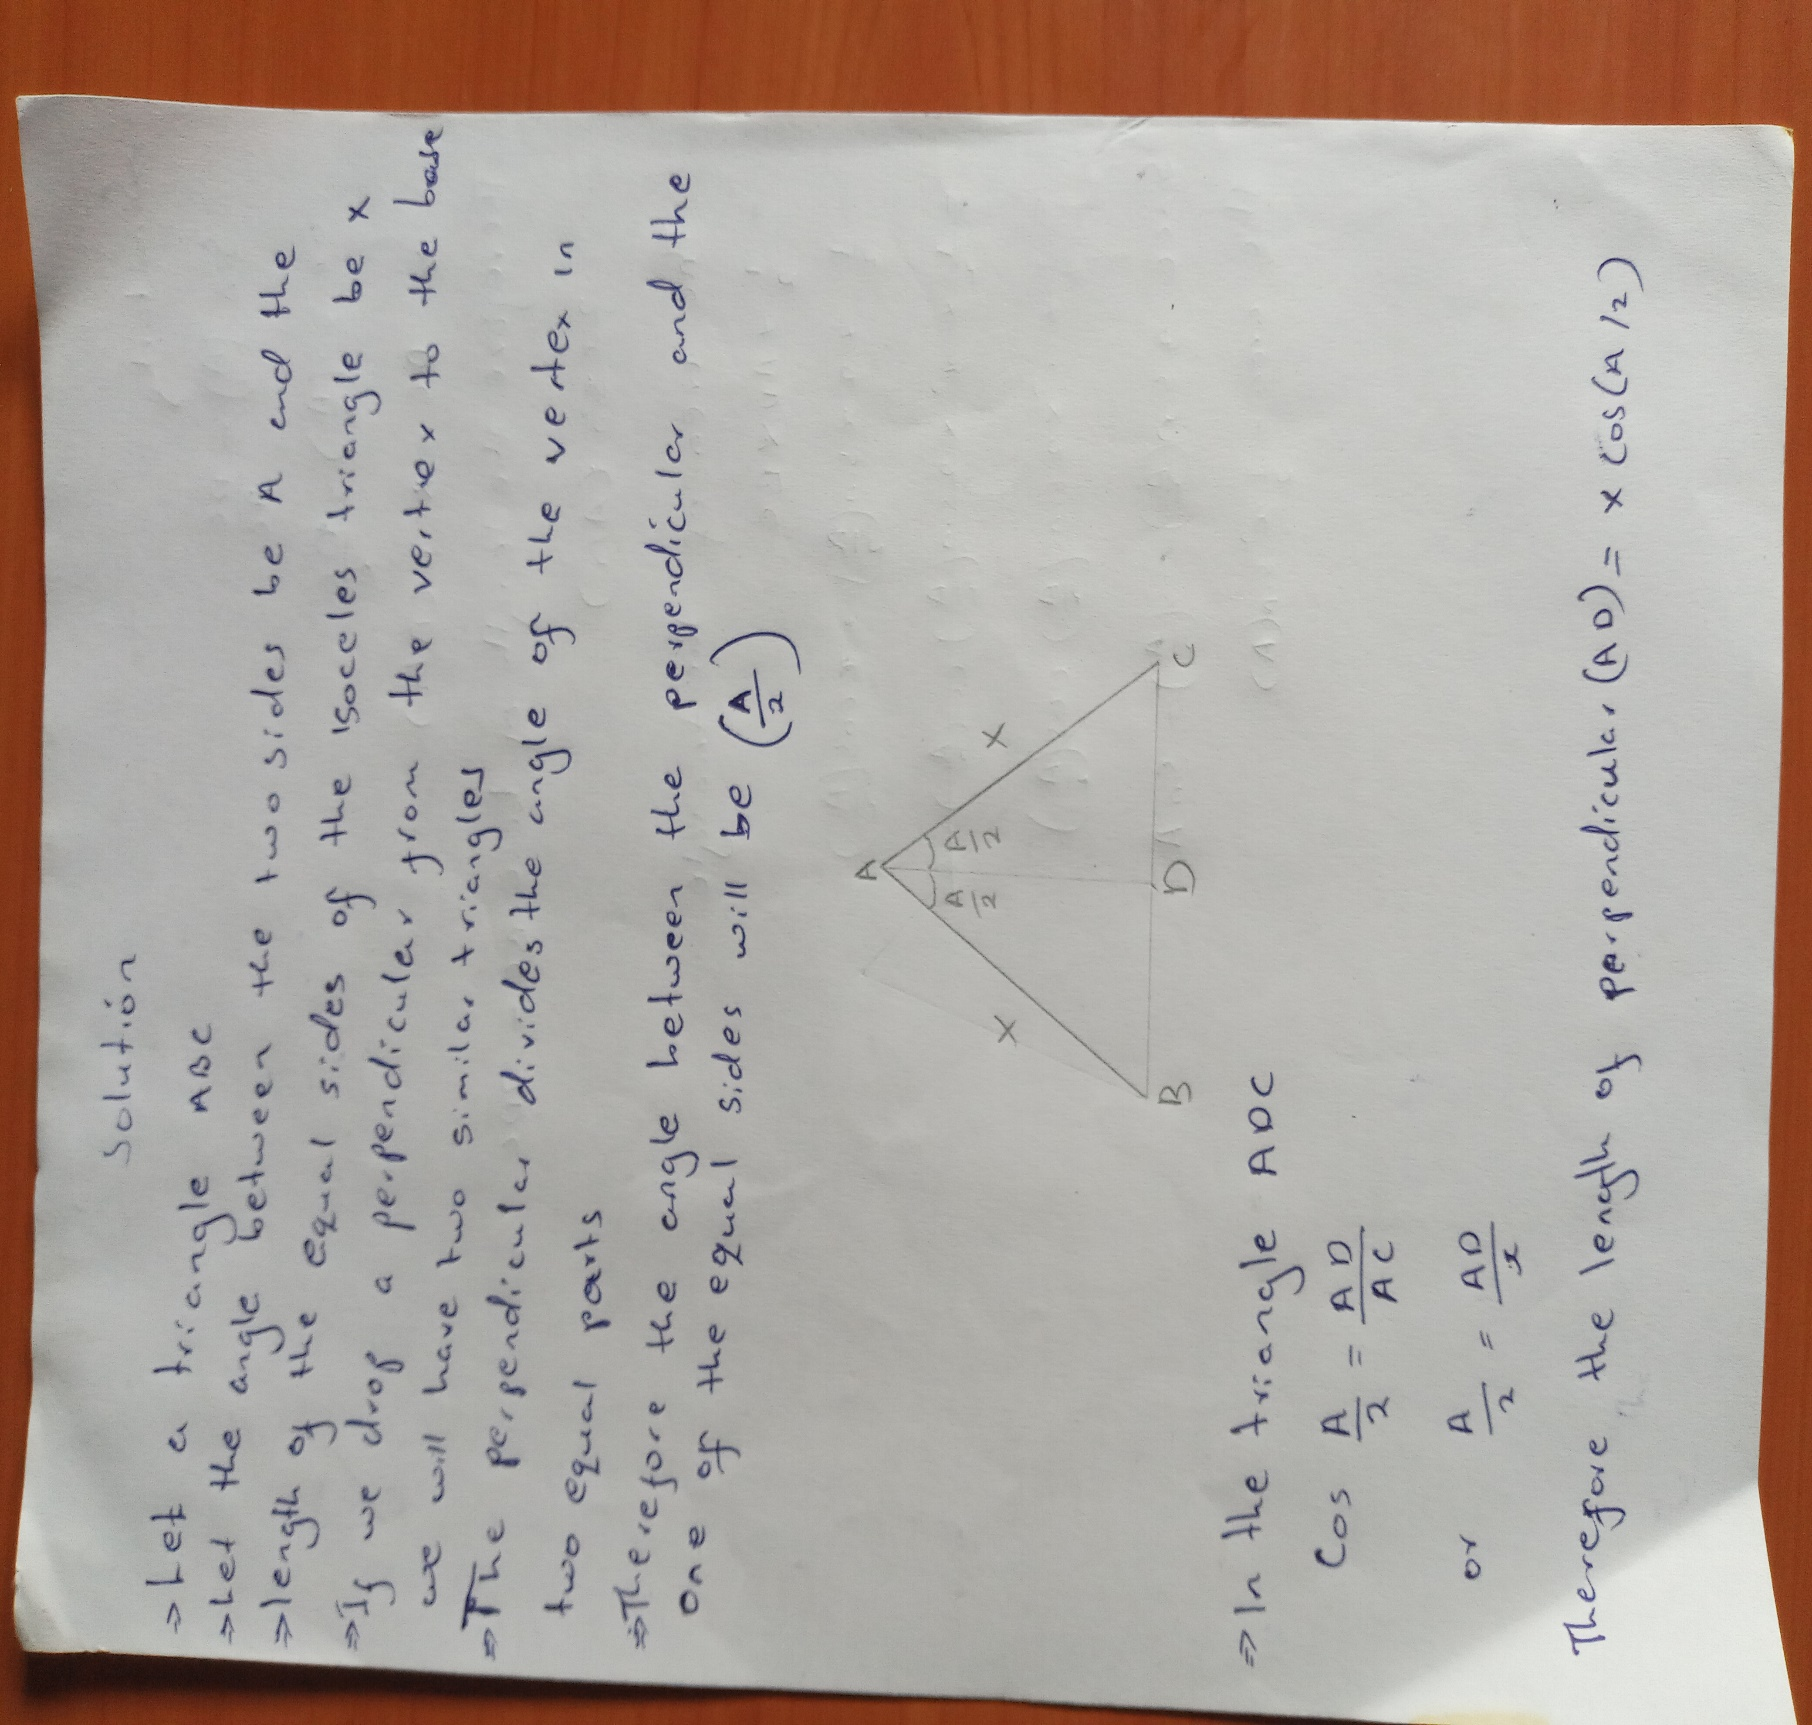 Solution
⇒ Let a triangle ABC
⇒ Let the angle between the two sides be A and the
⇒ length of the equal sides of the isoceles triangle be x
⇒ If we drop a perpendicular from the vertex to the base
we will have two similar triangles
⇒ The perpendicular divides the angle of the vertex in
two equal parts
⇒ Therefore the angle between the perpendicular and the
one of the equal sides will be (A/2)
A
A/2 A/2
x x
B D C
⇒ In the triangle ADC
Cos A/2 = AD/AC
or A/2 = AD/x
Therefore the length of perpendicular (AD) = x cos(A/2)